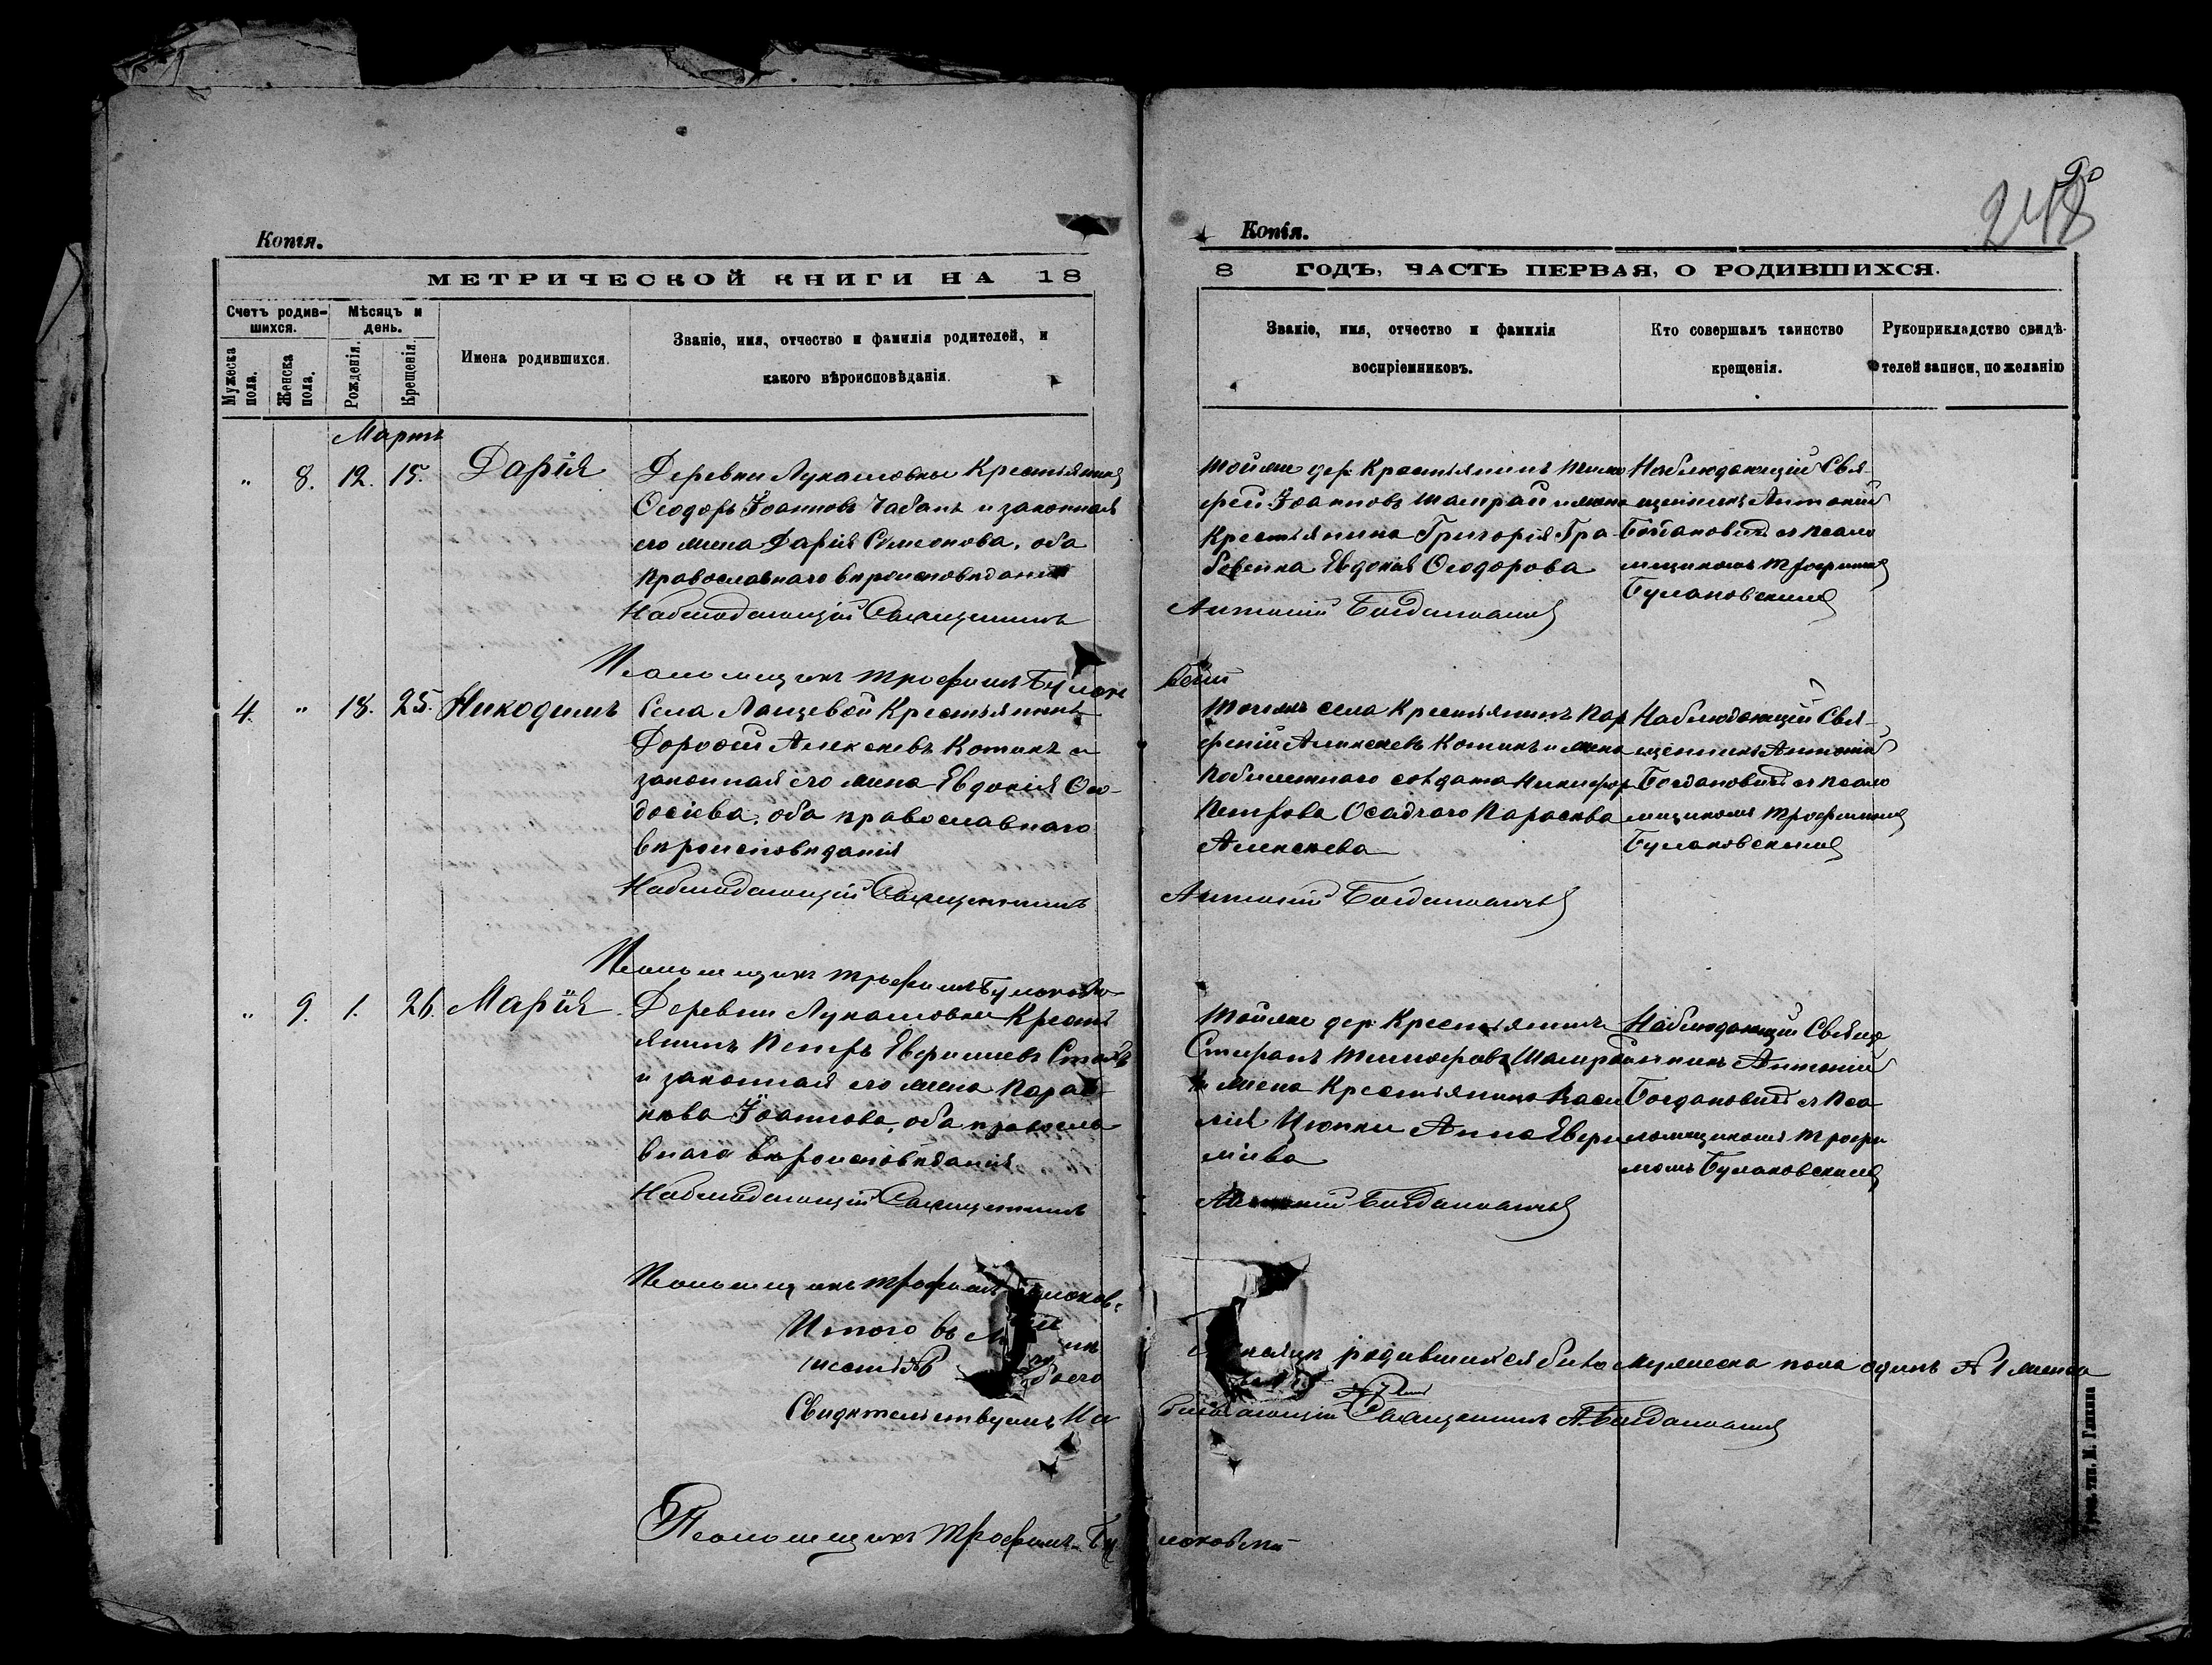 90
248
Копія.
МЕТРИЧЕСКОЙ КНИГИ НА 18
Счетъ родив-
шихся.
Мѣсяцъ и
день.
Мужеска
пола.
Женска
пола.
Рожденія.
Крещенія.
Имена родившихся.
Званіе, имя, отчество и фамилія родителей, и
какого вѣроисповѣданія.
Мартъ
„ 8. 12. 15. Дарія
Деревни Лукашовки Крестьянинъ
Ѳеодоръ Іоанновъ Чабанъ и законная
его жена Дарія Симеонова, оба
православнаго вѣроисповѣданія
Наблюдающій Священникъ
Псаломщикъ Трофимъ Булаков
4. „ 18. 25. Никодимъ
Села Ланцевой Крестьянинъ
Дорофей Алексѣевъ Котикъ и
законная его жена Евдокія Ѳео-
досіева, оба православнаго
вѣроисповѣданія
Наблюдающій Священникъ
Псаломщикъ Трофимъ Булаковскій
„ 9. 1. 26. Марія
Деревни Лукашовки Кресть
янинъ Петръ Евѳиміевъ
и законная его жена Парас
кева Іоаннова, оба правосла
внаго вѣроисповѣданія
Наблюдающій Священникъ
Псаломщикъ Трофимъ
Итого въ
Свидѣтельствуемъ На
Псаломщикъ Трофимъ Бу
Копія.
8 ГОДЪ, ЧАСТЬ ПЕРВАЯ, О РОДИВШИХСЯ.
Званіе, имя, отчество и фамилія
воспріемниковъ.
Кто совершалъ таинство
крещенія.
Рукоприкладство свидѣ-
телей записи, по желанію
Тойже дер. Крестьянинъ Тимо
фей Іоанновъ Шамрай и жена
Крестьянина Григорія Гра
бовенка Евдокія Ѳеодорова
Антоній Богдановичъ
Наблюдающій Свя-
щенникъ Антоній
Богдановичъ съ псало
мщикомъ Трофимомъ
Булаковскимъ
вскій
Тогожъ села Крестьянинъ Пар
феній Алексѣевъ Котикъ и жена
побилетнаго солдата Никифора
Петрова Осадчаго Параскева
Алексѣева
Антоній Богдановичъ
Наблюдающій Свя-
щенникъ Антоній
Богдановичъ съ псало
мщикомъ Трофимомъ
Булаковскимъ
Тойже дер. Крестьянинъ
Стефанъ Тимоѳеевъ Шамрай
и жена Крестьянина Васи
лія Цюпки Анна Евѳи
міева
Антоній Богдановичъ
Наблюдающій Священ
никъ Антоній
Богдановичъ съ Пса
ломщикомъ Трофи
момъ Булаковскимъ
родившихся было мужеска пола одинъ № 1 женска
блюдающій Священникъ А. Богдановичъ
лаковскій
Грод. тип. М. Гапкина